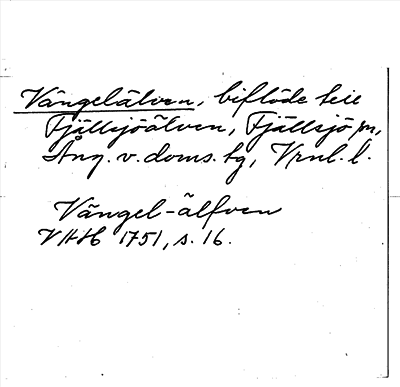 Vängelälven, biflöde till
Fjällsjöälven, Fjällsjö sn,
Ång. v. doms. tg, Vrnl. l.
Vängel-älfven
VHH 1751, s. 16.